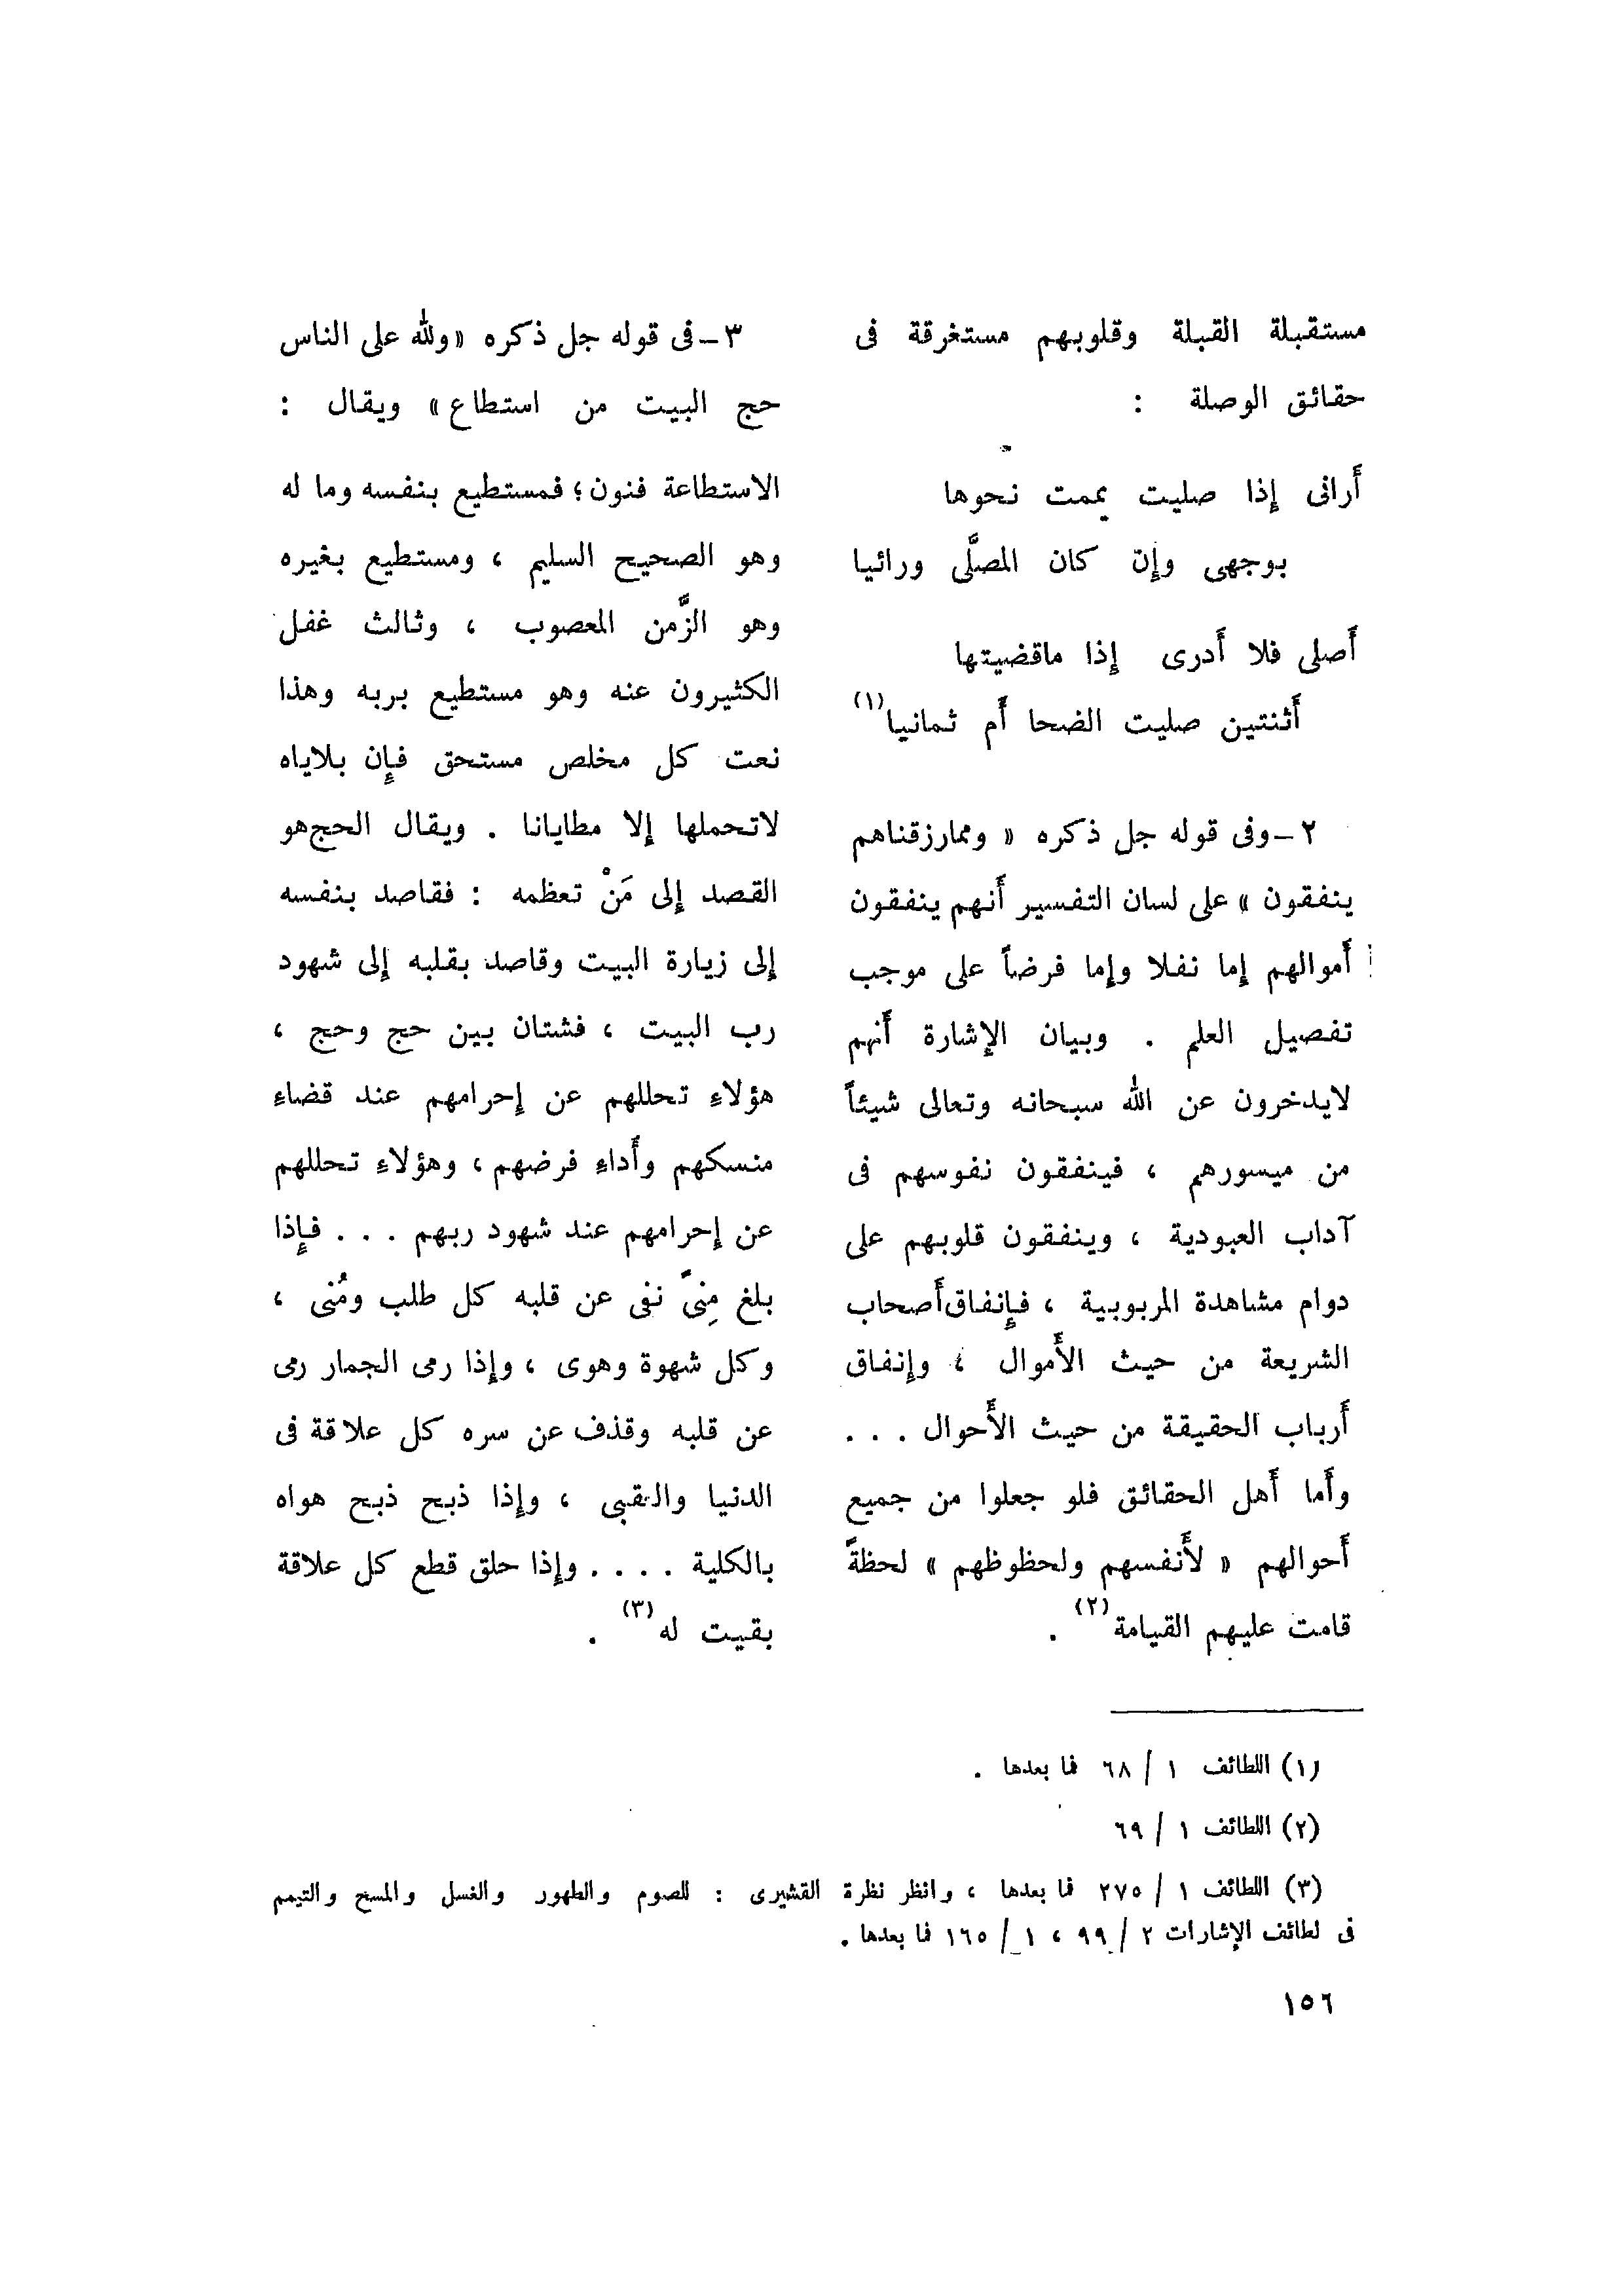 مستقبلة القبلة وقلوبهم مستغرقة فى
حقائق الوصلة :
أرانى إذا صليت يممت نحوها
بوجهى وإن كان المصلَّى ورائيا
أصلى فلا أدرى إذا ماقضيتها
أثنتين صليت الضحا أم ثمانيا(١)
٢ – وفى قوله جل ذكره « وممارزقناهم
ينفقون » على لسان التفسير أنهم ينفقون
أموالهم إما نفلا وإما فرضاً على موجب
تفصيل العلم . وبيان الإشارة أنهم
لايدخرون عن الله سبحانه وتعالى شيئاً
من ميسورهم ، فينفقون نفوسهم فى
آداب العبودية ، وينفقون قلوبهم على
دوام مشاهدة المربوبية ، فإنفاق أصحاب
الشريعة من حيث الأموال ، وإنفاق
أرباب الحقيقة من حيث الأحوال . . .
وأما أهل الحقائق فلو جعلوا من جميع
أحوالهم « لأنفسهم ولحظوظهم » لحظةً
قامت عليهم القيامة(٢) .
٣ – فى قوله جل ذكره « ولله على الناس
حج البيت من استطاع » ويقال :
الاستطاعة فنون ؛ فمستطيع بنفسه وما له
وهو الصحيح السليم ، ومستطيع بغيره
وهو الزَّمن المعصوب ، وثالث غفل
الكثيرون عنه وهو مستطيع بربه وهذا
نعت كل مخلص مستحق فإن بلاياه
لاتحملها إلا مطايانا . ويقال الحج هو
القصد إلى مَنْ تعظمه : فقاصد بنفسه
إلى زيارة البيت وقاصد بقلبه إلى شهود
رب البيت ، فشتان بين حج وحج ،
هؤلاء تحللهم عن إحرامهم عند قضاء
منسكهم وأداء فرضهم ، وهؤلاء تحللهم
عن إحرامهم عند شهود ربهم . . . فإذا
بلغ مِنىً نفى عن قلبه كل طلب ومُنى ،
وكل شهوة وهوى ، وإذا رمى الجمار رمى
عن قلبه وقذف عن سره كل علاقة فى
الدنيا والعقبى ، وإذا ذبح ذبح هواه
بالكلية . . . . وإذا حلق قطع كل علاقة
بقيت له(٣) .
(١) اللطائف ١ / ٦٨ فما بعدها .
(٢) اللطائف ١ / ٦٩
(٣) اللطائف ١ / ٢٧٥ فما بعدها ، وانظر نظرة القشيرى : للصوم والطهور والغسل والمسح والتيمم
فى لطائف الإشارات ٢ / ٩٩ ، ١ / ١٦٥ فما بعدها .
١٥٦